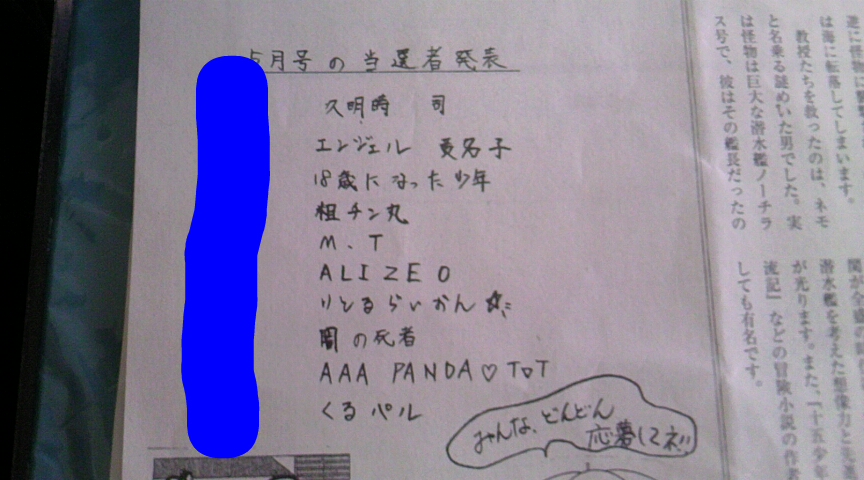 5月号の当選者発表
久明時 司
エンジェル 真名子
18歳になった少年
粗チン丸
M.T
ALIZEO
りとるらいおん☆ミ
闇の死者
AAA PANDA♡TOT
くるパル
みんな、どんどん
応募してネ!!
は海に転落してしまいます。
教授たちを救ったのは、ネモ
と名乗る謎めいた男でした。実
は怪物は巨大な潜水艦ノーチラ
ス号で、彼はその艦長だったの
潜水艦を考えた想像力と先進
が光ります。また、『十五少年
流記』などの冒険小説の作者
しても有名です。